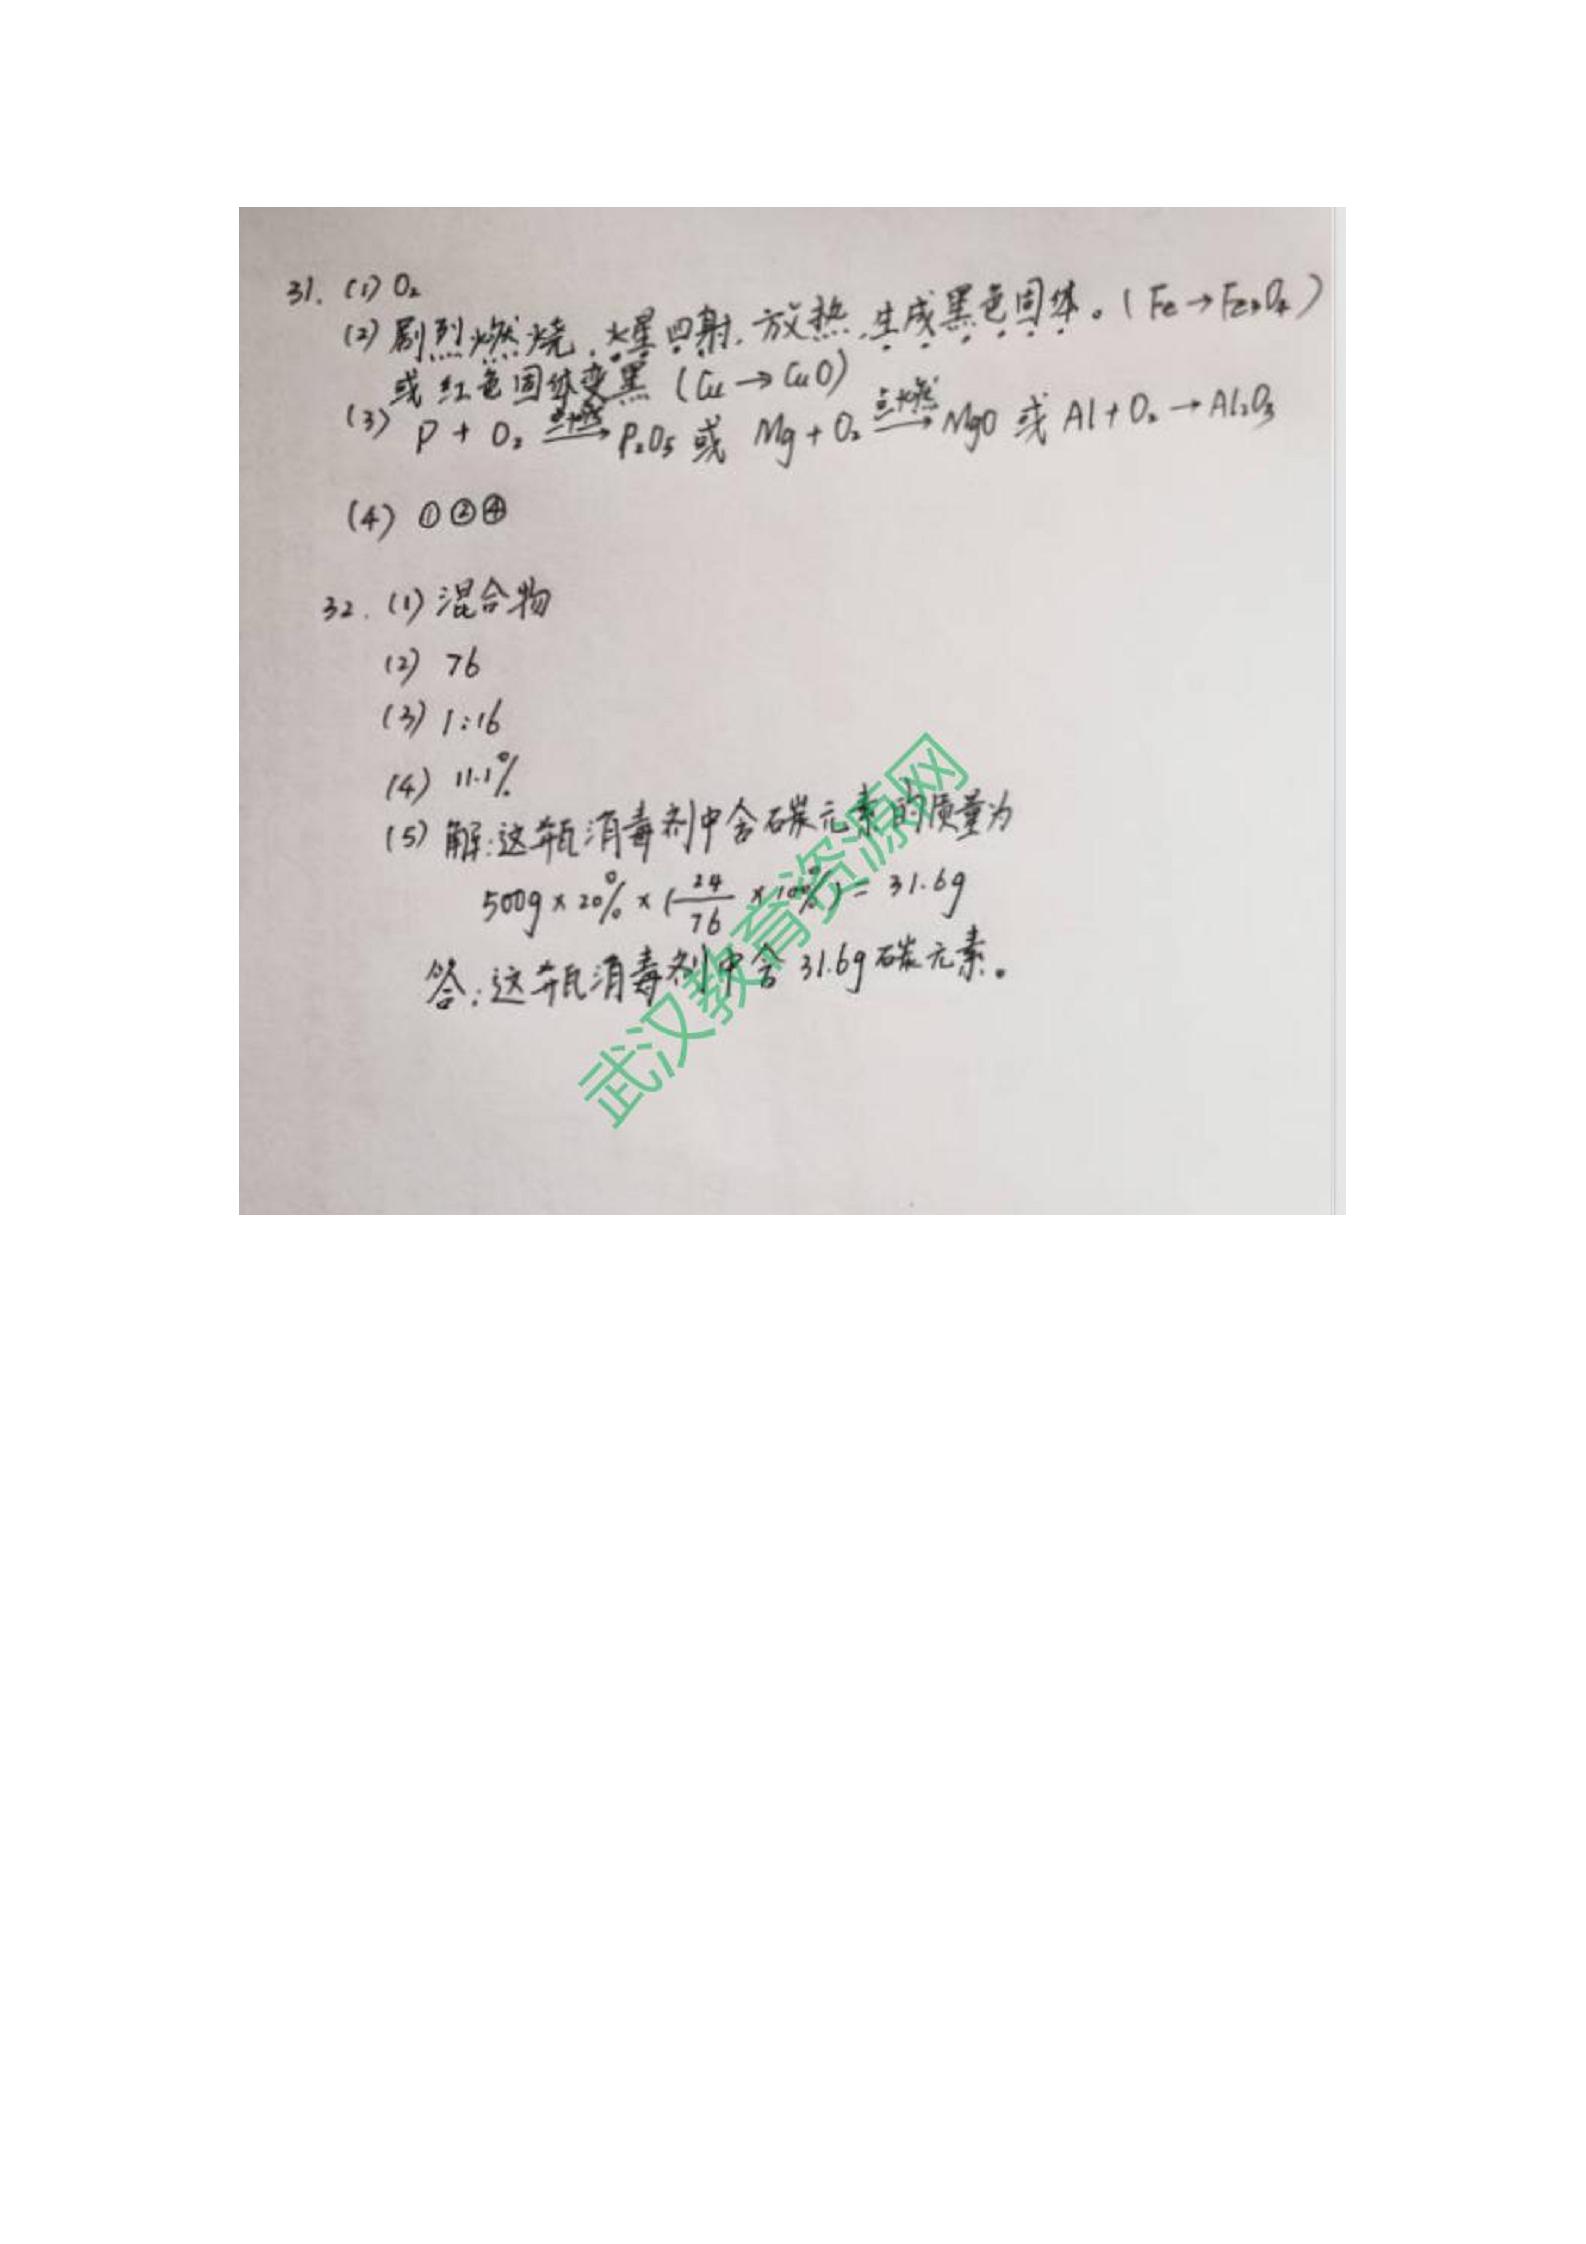 31. (1) O₂
(2) 剧烈燃烧,火星四射,放热,生成黑色固体。(Fe→Fe₃O₄)
或红色固体变黑 (Cu→CuO)
(3) P + O₂ 点燃→ P₂O₅ 或 Mg + O₂ 点燃→ MgO 或 Al + O₂ → Al₂O₃
(4) ①②④
32. (1) 混合物
(2) 76
(3) 1:16
(4) 11.1%
(5) 解:这瓶消毒剂中含碳元素的质量为
500g × 20% × (24/76 × 100%) = 31.6g
答:这瓶消毒剂中含 31.6g 碳元素。
武汉教育资源网